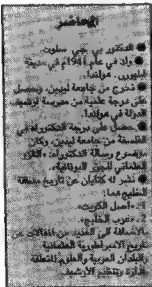 المحاضر
● الدكتور بي جي سلوت.
● ولد في عام 1941م في مدينة
هولندا.
● تخرج من جامعة ليدن، وحصل
على درجة علمية من مدرسة أرشيف
الدولة في هولندا.
● حصل على درجة الدكتوراه في
الفلسفة من جامعة ليدن، وكان
موضوع رسالة الدكتوراه:
العثماني
● نشر له كتابان عن تاريخ منطقة
الخليج هما:
1- «أصل الكويت».
2- «عرب الخليج».
بالإضافة إلى العديد من المقالات عن
تاريخ الامبراطورية العثمانية
والبلدان العربية
إدارة وتنظيم الأرشيف.